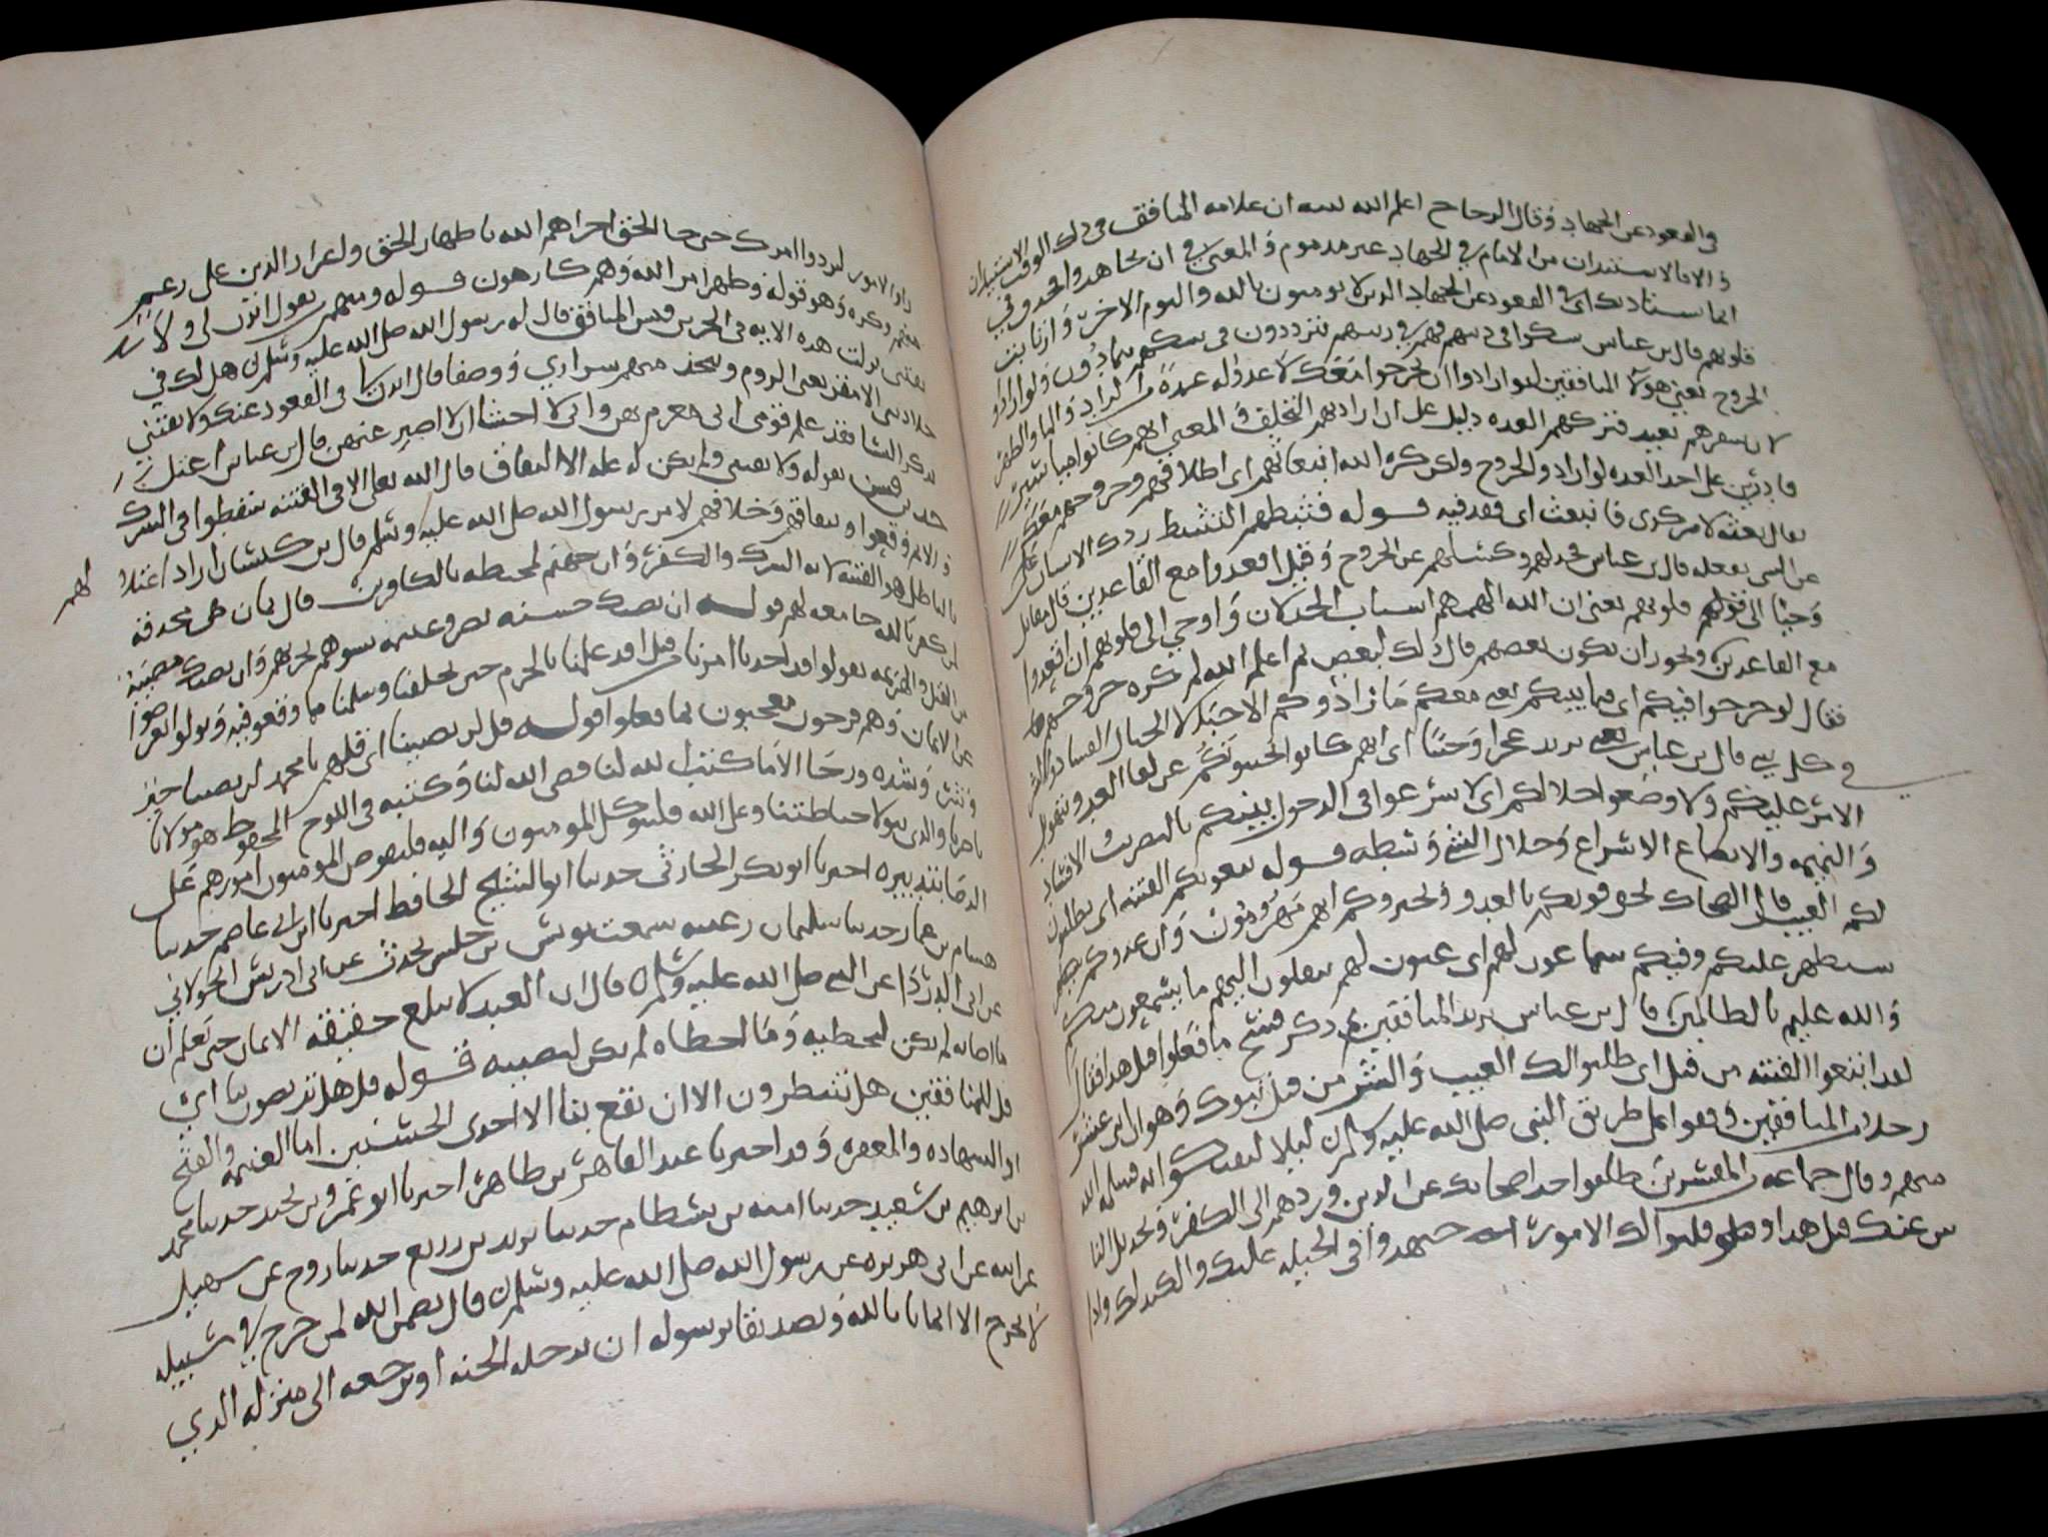 في القعود عن الجهاد وقال الزجاج اعلم الله نبيه ان علامة المنافق في ذلك الوقت الاستيذان
انما يستاذنك اي في القعود عن الجهاد الذين لا يومنون بالله واليوم الاخر وارتابت
قلوبهم قال ابن عباس شكوا في دينهم فهم في ريبهم يترددون في شكهم يتمادون ولو ارادوا
الخروج يعني هولا المنافقين لو ارادوا ان يخرجوا معك لاعدوا له عدة من الزاد والماء والظهر
لان سفرهم بعيد فتركهم العدة دليل على ارادتهم التخلف والمعني انهم كانوا مياسير
قادرين على اخذ العدة لو ارادوا الخروج ولكن كره الله انبعاثهم اي انطلاقهم وخروجهم معك
يقال بعثته لامر كذا فانبعث اي نفذ فيه قوله فثبطهم التثبيط ردك الانسان
عن الشي يفعله قال ابن عباس فخذلهم وكسلهم عن الخروج وقيل اقعدوا مع القاعدين قال مقاتل
وحيا الى قلوبهم يعني ان الله الهمهم اسباب الخذلان واوحي الى قلوبهم ان اقعدوا
مع القاعدين ويجوز ان يكون بعضهم قال ذلك لبعض ثم اعلم الله لم كره خروجهم
فقال لو خرجوا فيكم اي فيما بينكم يعني معكم ما زادوكم الا خبالا الخبال الفساد والشر
في كل شي قال ابن عباس يريد عجزا وجبنا اي انهم كانوا يجبنونكم عن لقا العدو بتهويل
الامر عليكم ولاوضعوا خلالكم اي لاسرعوا في الدخول بينكم بالتضريب والافساد
والنميمة والايضاع الاسراع وخلال الشي وسطه قوله يبغونكم الفتنة اي يطلبون
لكم العيب قال الضحاك يخوفونكم بالعدو ويخبروكم انهم مهزومون وان عدوكم
سيظهر عليكم وفيكم سماعون لهم اي عيون لهم ينقلون اليهم ما يسمعون منكم
والله عليم بالظالمين قال ابن عباس يريد المنافقين ثم ذكر قبيح ما فعلوا قبل هذا فقال
لقد ابتغوا الفتنة من قبل اي طلبوا لك العيب والشر من قبل تبوك وهو ان اثني عشر
رجلا من المنافقين وقفوا على طريق النبي صلى الله عليه وسلم ليلا ليفتكوا به فسلمه الله
منهم وقال جماعة المفسرين طلبوا صد اصحابك عن الدين وردهم الى الكفر وتخذيل الناس
عنك قبل هذا وقلبوا لك الامور اي اجتهدوا في الحيلة عليك والكيد لك واداروا
لردوا امرك حتى جا الحق اخزاهم الله باظهار الحق واعزاز الدين على رغم
منهم وكره وهو قوله وظهر امر الله وهم كارهون قوله ومنهم من يقول ائذن لي ولا
تفتني نزلت هذه الاية في الجد بن قيس المنافق قال له رسول الله صلى الله عليه وسلم هل لك في
جلاد بني الاصفر يعني الروم وتتخذ منهم سراري ووصفا قال ايذن لي في القعود عنك ولا تفتني
بذكر النسا فقد علم قومي اني مغرم بهن واني لاخشى ان لا اصبر عنهن قال ابن عباس اعتل
جد بن قيس بقوله ولا تفتني ولم يكن له علة الا النفاق قال الله تعالى الا في الفتنة سقطوا في الشرك
والاثم وقعوا بنفاقهم وخلافهم لامر رسول الله صلى الله عليه وسلم قال ابن كيسان اراد اعتلا
لهم
بالباطل هو الفتنة لانه الشرك والكفر وان جهنم لمحيطة بالكافرين قال يمان هي محدقة
بمن كفر بالله جامعة لهم قوله ان تصبك حسنة نصر وغنيمة تسوهم تحزنهم وان تصبك مصيبة
من القتل والهزيمة يقولوا قد اخذنا امرنا من قبل قد عملنا بالحزم حين تخلفنا وسلمنا مما وقعوا فيه ويتولوا اعرضوا
عن الايمان وهم فرحون معجبون بما فعلوا قوله قل لن يصيبنا اي قل لهم يا محمد لن يصيبنا خير
وشر وشدة ورخا الا ما كتب الله لنا قضى الله لنا وكتبه في اللوح المحفوظ هو مولانا
ناصرنا والذي يتولا حياطتنا وعلى الله فليتوكل المومنون واليه فليفوض المومنون امورهم على
الرضا بتدبيره اخبرنا ابو بكر الحارثي حدثنا ابو الشيخ الحافظ اخبرنا ابن ابي عاصم حدثنا
هشام بن عمار حدثنا سليمان بن عتبة سمعت يونس بن حلبس يحدث عن ابي ادريس الخولاني
عن ابي الدرداء عن النبي صلى الله عليه وسلم قال ان العبد لا يبلغ حقيقة الايمان حتى يعلم ان
ما اصابه لم يكن ليخطيه وما اخطاه لم يكن ليصيبه قوله قل هل تربصون بنا اي
قل للمنافقين هل تنتظرون الا ان تقع بنا الا احدى الحسنيين اما الغنيمة والفتح
او الشهادة والمغفرة وقد اخبرنا عبد القاهر بن طاهر اخبرنا ابو عمرو بن نجيد حدثنا محمد
بن ابرهيم بن سعيد حدثنا امية بن بسطام حدثنا يزيد بن زريع حدثنا روح عن سهيل
عن ابيه عن ابي هريرة عن رسول الله صلى الله عليه وسلم قال تضمن الله لمن خرج في سبيله
لا يخرج الا ايمانا بالله وتصديقا برسوله ان يدخله الجنة او يرجعه الى منزله الذي